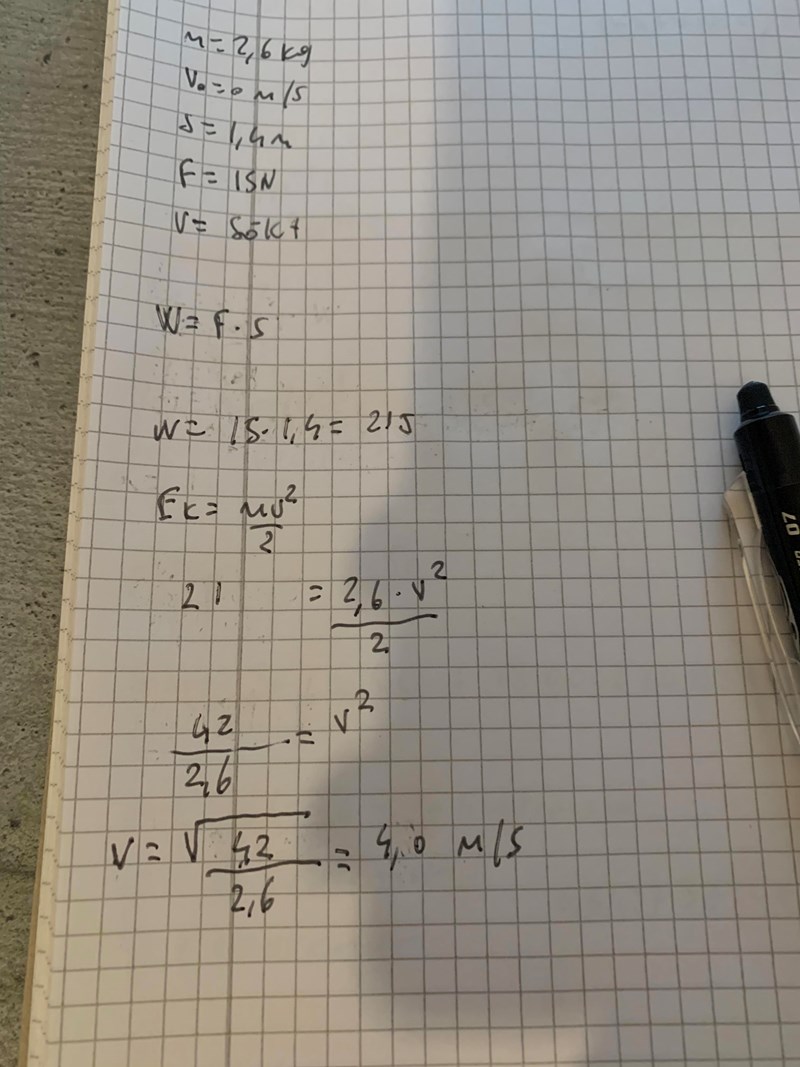 m = 2,6 kg
V₀ = 0 m/s
s = 1,4 m
F = 15N
V = sökt
W = F · s
W = 15 · 1,4 = 21J
Ek = mv²/2
21 = 2,6 · v²/2
42/2,6 = v²
V = √42/2,6 = 4,0 m/s
0.7